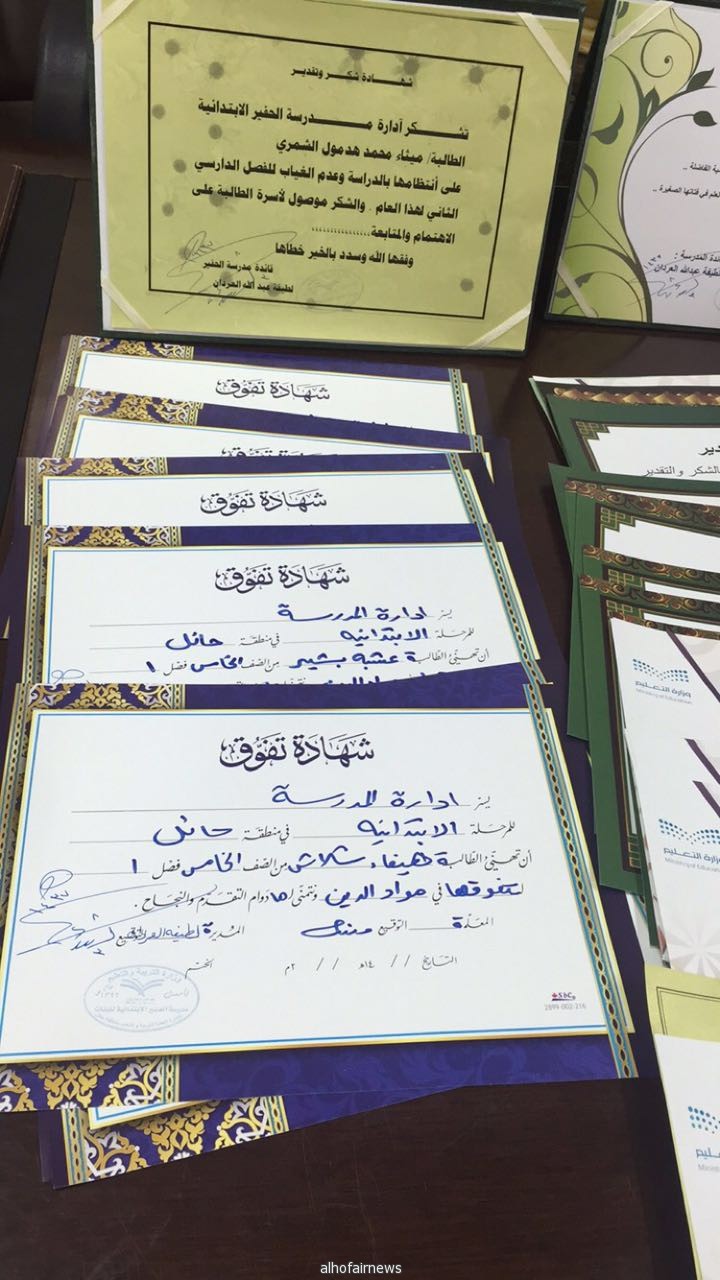 شهادة شكر وتقدير
تشكر آدارة مدرسة الحفير الابتدائية
الطالبة/ ميثاء محمد هدمول الشمري
على أنتظامها بالدراسة وعدم الغياب للفصل الدارسي
الثاني لهذا العام . والشكر موصول لأسرة الطالبة على
الاهتمام والمتابعة
وفقها الله وسدد بالخير خطاها
قائدة مدرسة الحفير
لطيفة عبد الله العردان
ية الفاضلة ..
لعلم في فتاتها الصغيرة ..
ئدة المدرسة :
لطيفة عبدالله العردان
شهادة تفوق
شهادة تفوق
شهادة تفوق
شهادة تفوق
يسر ادارة المدرسة
للمرحلة الابتدائية في منطقة حائل
أن تهنئ الطالبة بشير من الصف الخامس فصل ١
شهادة تفوق
يسر ادارة المدرسة
للمرحلة الابتدائية في منطقة حائل
أن تهنئ الطالبة هيفاء شلاش من الصف الخامس فصل ١
لتفوقها في مواد الدين ونتمنى لها دوام التقدم والنجاح .
المعلمة التوقيع المديرة لطيفة العردان التوقيع
التاريخ / / ١٤هـ / / ٢م الختم
وزارة التربية والتعليم
مدرسة الحفير الابتدائية للبنات
SDC
2899-002-216
دير
بالشكر والتقدير
وزارة التعليم
Ministry of Education
وزارة التعليم
Ministry of Educa
عليم
alhofairnews